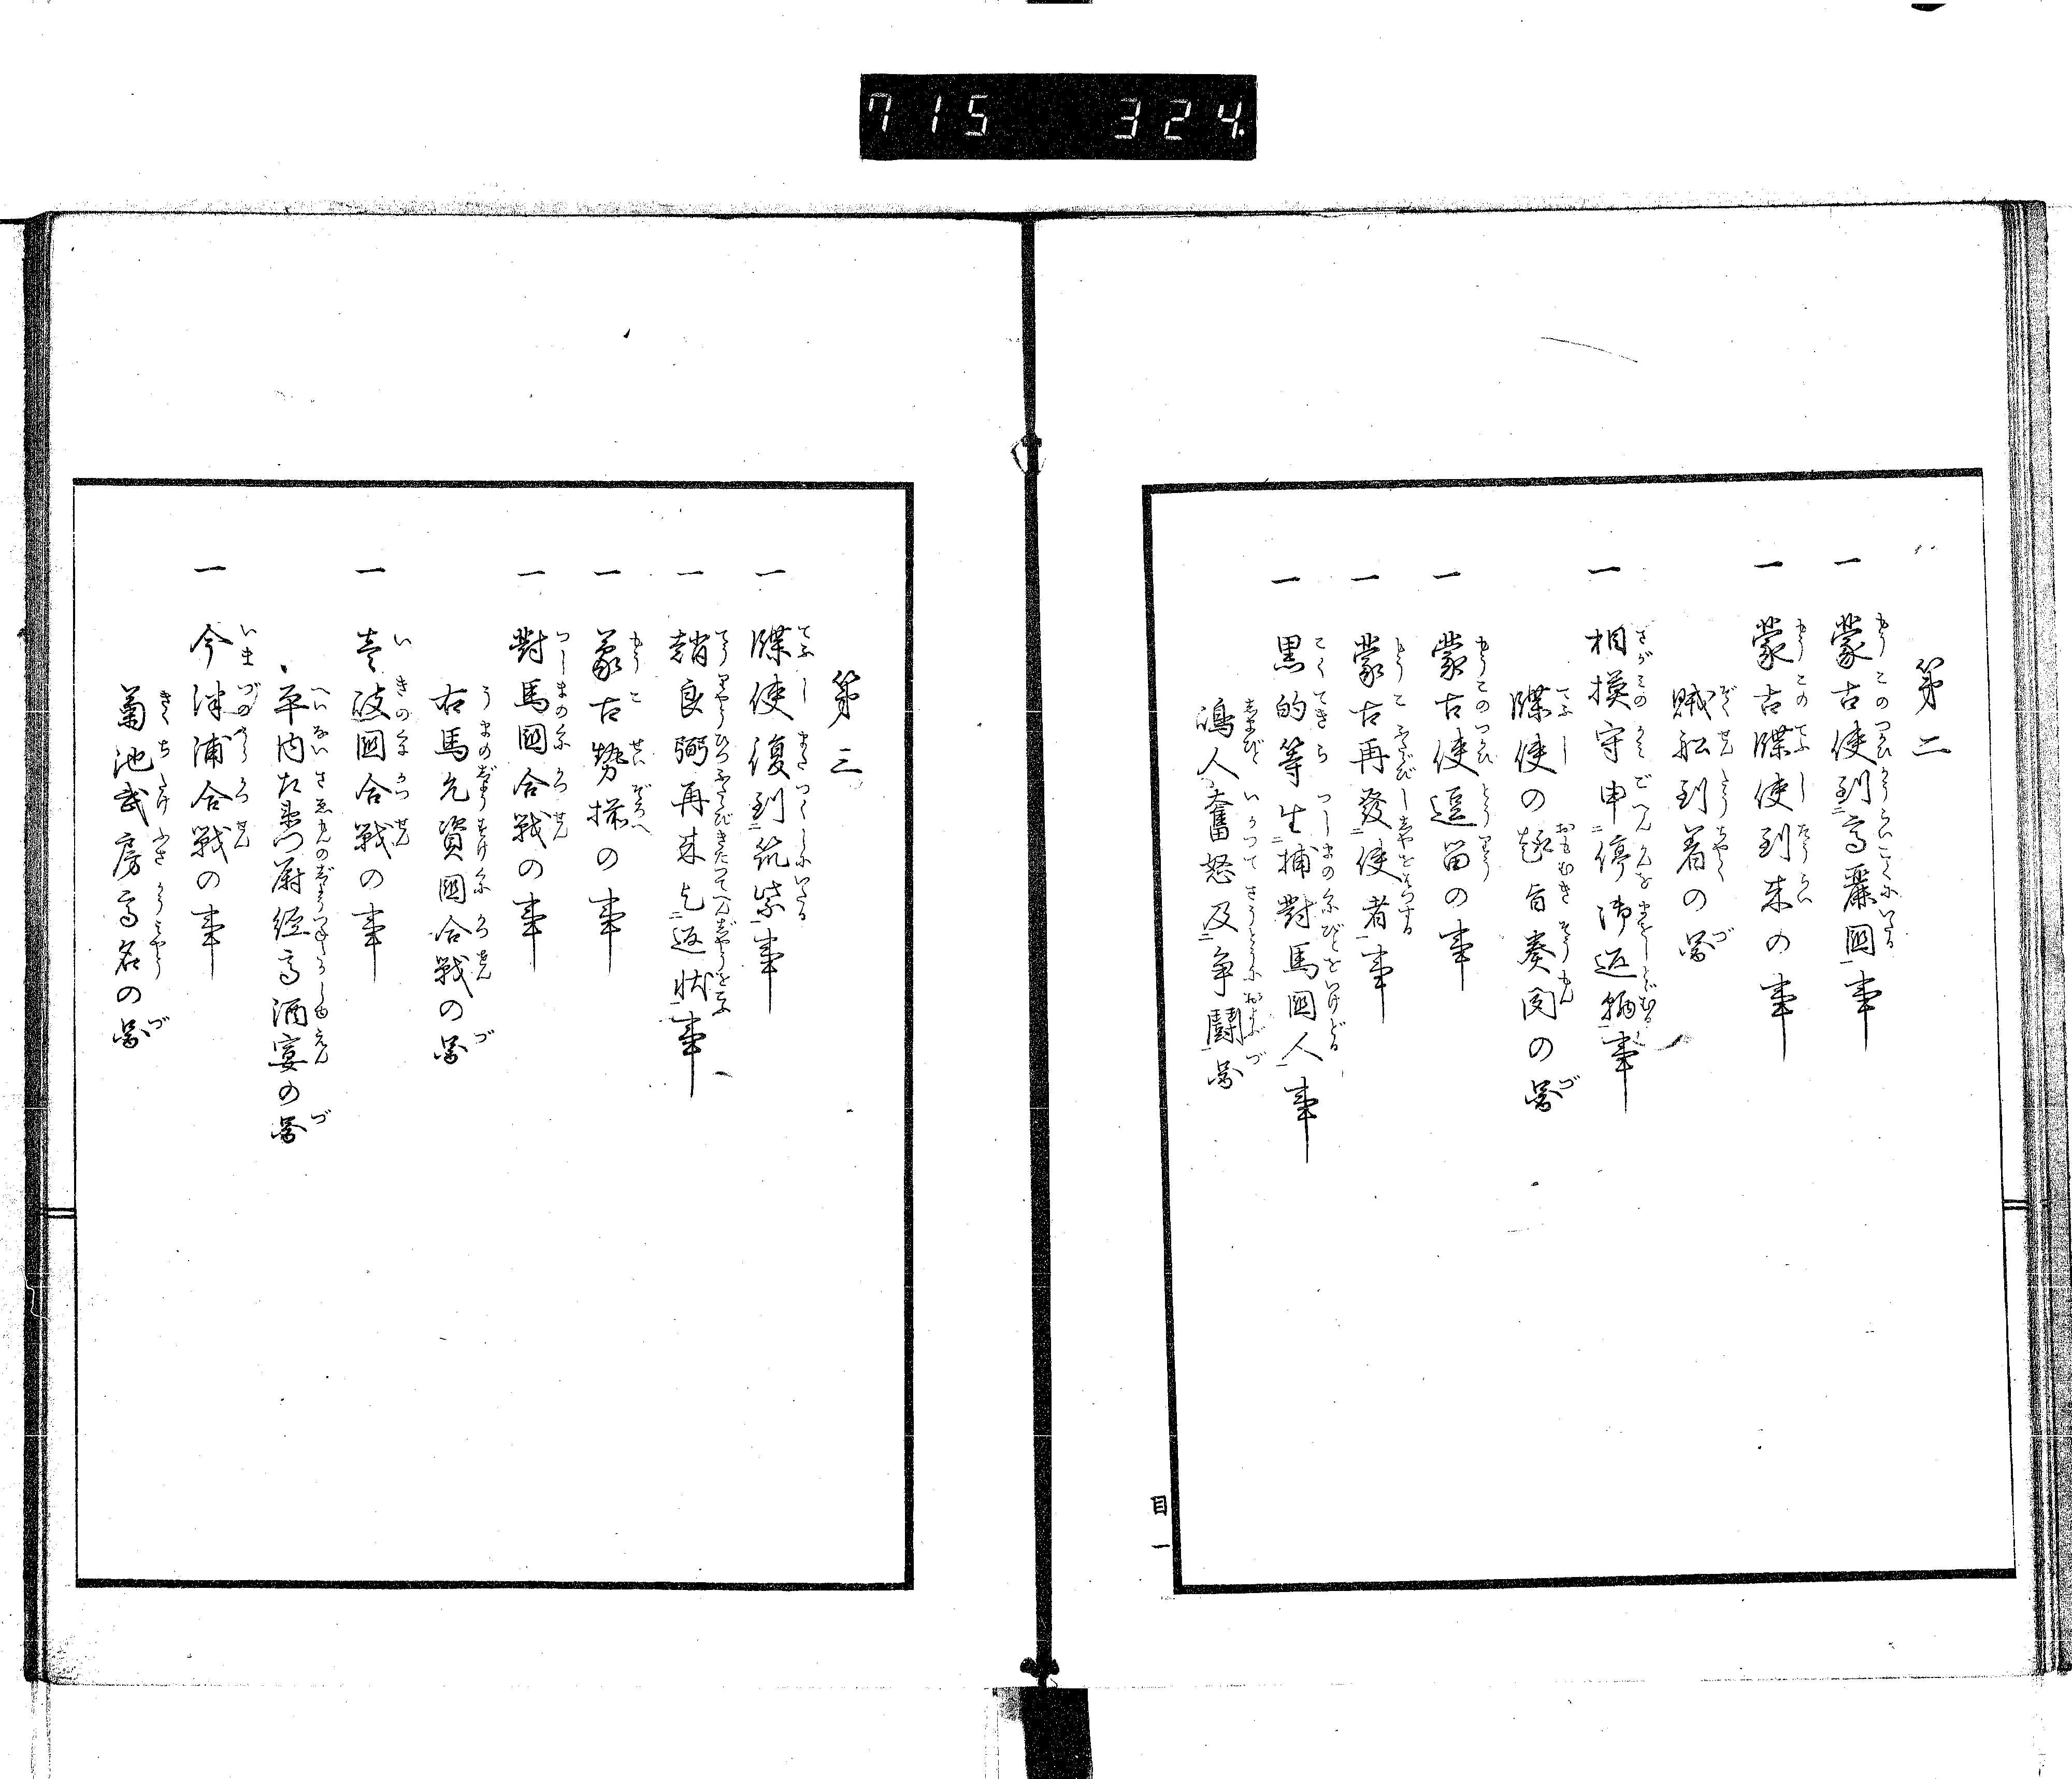 715 324.
第二
一 蒙古使到二高麗國一事
一 蒙古牒使到来の事
賊舩到着の圖
一 相摸守申二停御返翰一事
牒使の趣旨奏聞の圖
一 蒙古使逗留の事
一 蒙古再發二使者一事
一 黒的等生二捕對馬國人一事
嶋人奮怒及二争闘一圖
目一
第三
一 牒使復到二筑紫一事
一 趙良弼再来乞二返状一事
一 蒙古勢揃の事
一 對馬國合戦の事
右馬允資國合戦の圖
一 壹岐國合戦の事
平内左衛門尉經高酒宴の圖
一 今津浦合戦の事
菊池武房高名の圖